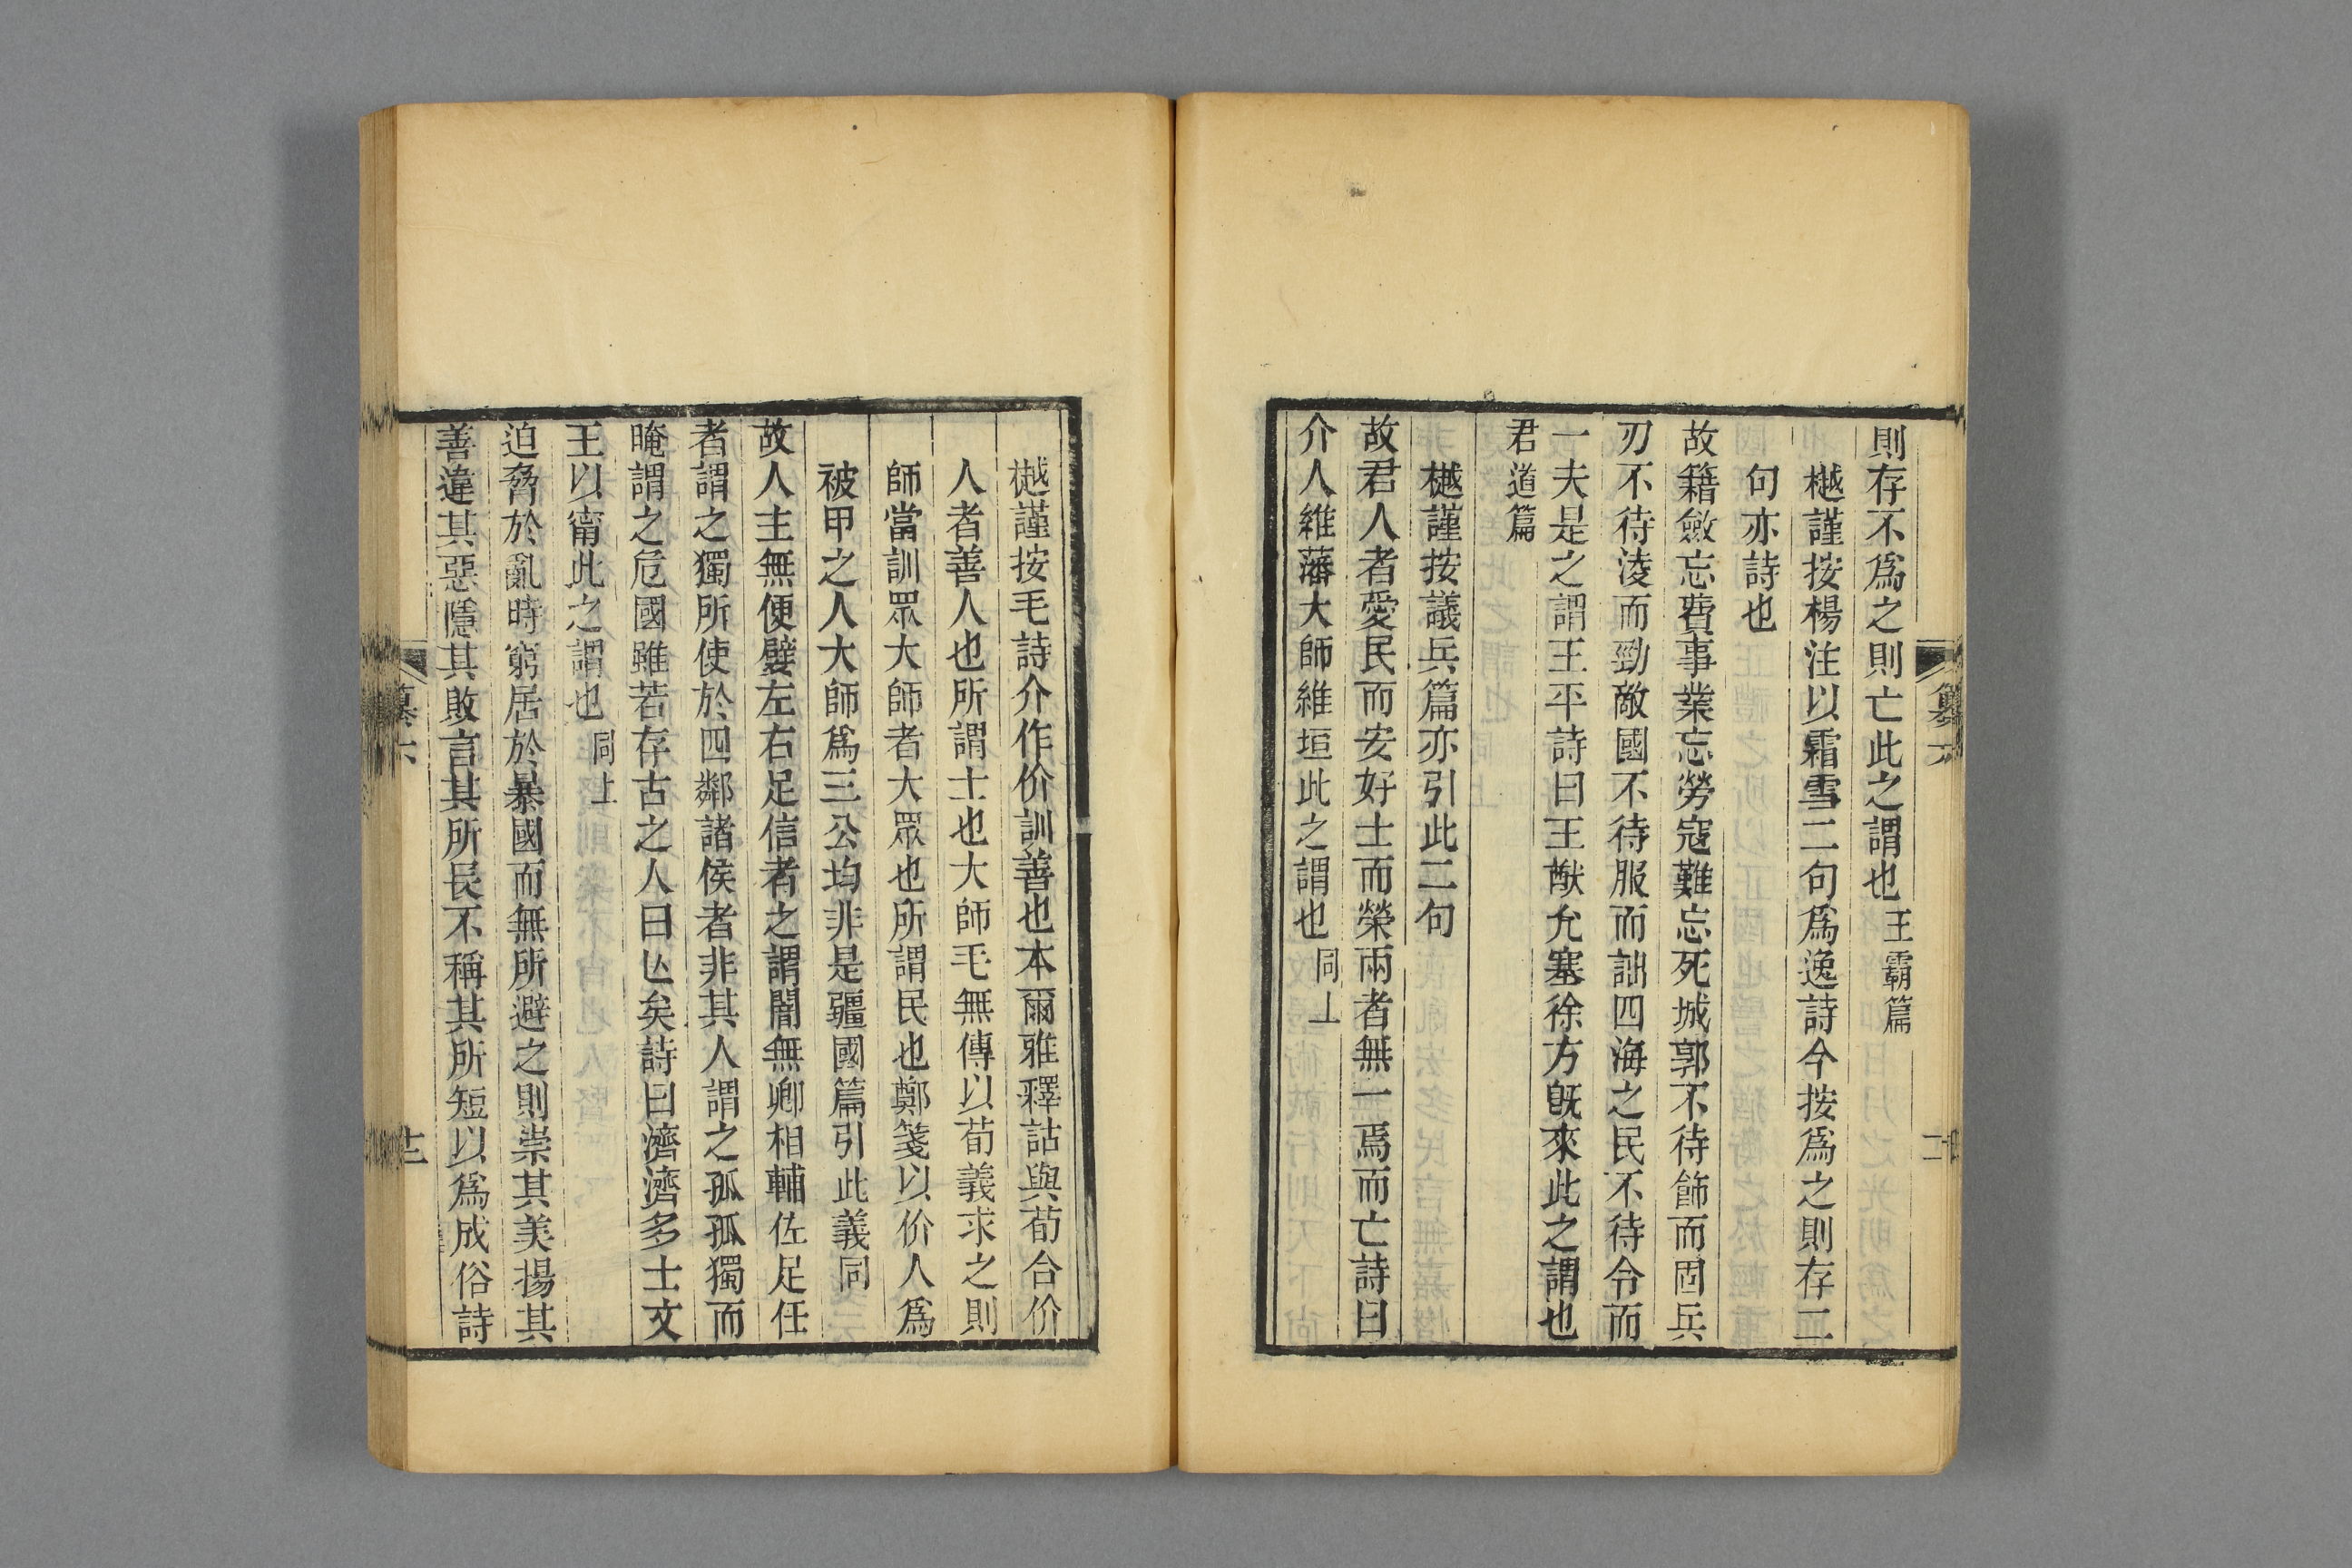 則存不爲之則亡此之謂也王霸篇
樾謹按楊注以霜雪二句爲逸詩今按爲之則存二
句亦詩也
故籍斂忘費事業忘勞寇難忘死城郭不待飾而固兵
刃不待淩而勁敵國不待服而詘四海之民不待令而
一夫是之謂王平詩曰王猷允塞徐方旣來此之謂也
君道篇
樾謹按議兵篇亦引此二句
故君人者愛民而安好士而榮兩者無一焉而亡詩曰
介人維藩大師維垣此之謂也同上
樾謹按毛詩介作价訓善也本爾雅釋詁與荀合价
人者善人也所謂士也大師毛無傳以荀義求之則
師當訓眾大師者大眾也所謂民也鄭箋以价人爲
被甲之人大師爲三公均非是彊國篇引此義同
故人主無便嬖左右足信者之謂闇無卿相輔佐足任
者謂之獨所使於四鄰諸侯者非其人謂之孤孤獨而
晻謂之危國雖若存古之人曰亾矣詩曰濟濟多士文
王以甯此之謂也同上
迫脅於亂時窮居於暴國而無所避之則崇其美揚其
善違其惡隱其敗言其所長不稱其所短以爲成俗詩